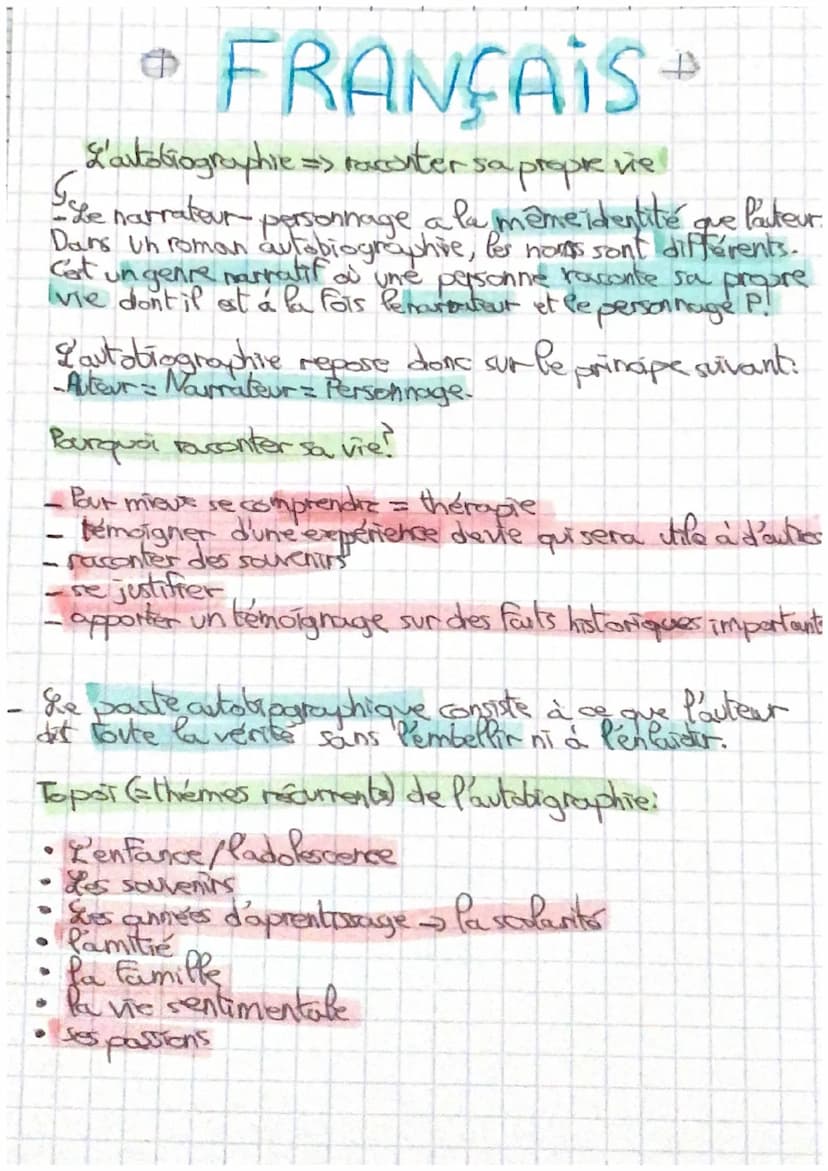 FRANÇAiS
L'autobiographie => raconter sa propre vie
- Le narrateur personnage a la même identité que l'auteur.
Dans un roman autobiographie, les noms sont différents.
C'est un genre narratif où une personne raconte sa propre
vie dont il est à la fois le narrateur et le personnage P!
L'autobiographie repose donc sur le principe suivant:
- Auteur = Narrateur = Personnage.
Pourquoi raconter sa vie?
- Pour mieux se comprendre = thérapie
- témoigner d'une expérience de vie qui sera utile à d'autres
- raconter des souvenirs
- se justifier
- apporter un témoignage sur des faits historiques important
- Le pacte autobiographique consiste à ce que l'auteur
dit toute la vérité sans l'embellir ni à l'enlaidir.
Topoï (=thèmes récurrents) de l'autobigraphie:
• L'enfance/l'adolescence
• Les souvenirs
• Les années d'aprentissage → la scolarité
• l'amitié
• la famille
• la vie sentimentale
• ses passions